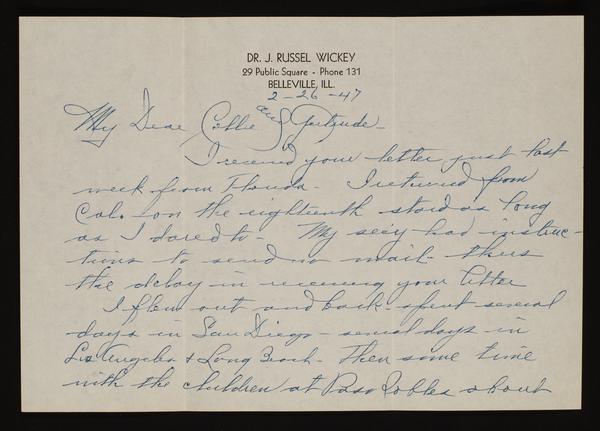 DR. J. RUSSEL WICKEY
29 Public Square - Phone 131
BELLEVILLE, ILL.
2-26-47
My Dear Collie and Gertrude-
I received your letter just last
week from Florida- I returned from
Cal. on the eighteenth stayed as long
as I dared to- My sec'y had instruc-
tions to send no mail- thus
the delay in receiving your letter
I flew out and back- spent several
days in San Diego- several days in
Los Angeles & Long Beach- Then some time
with the children at Paso Robles about